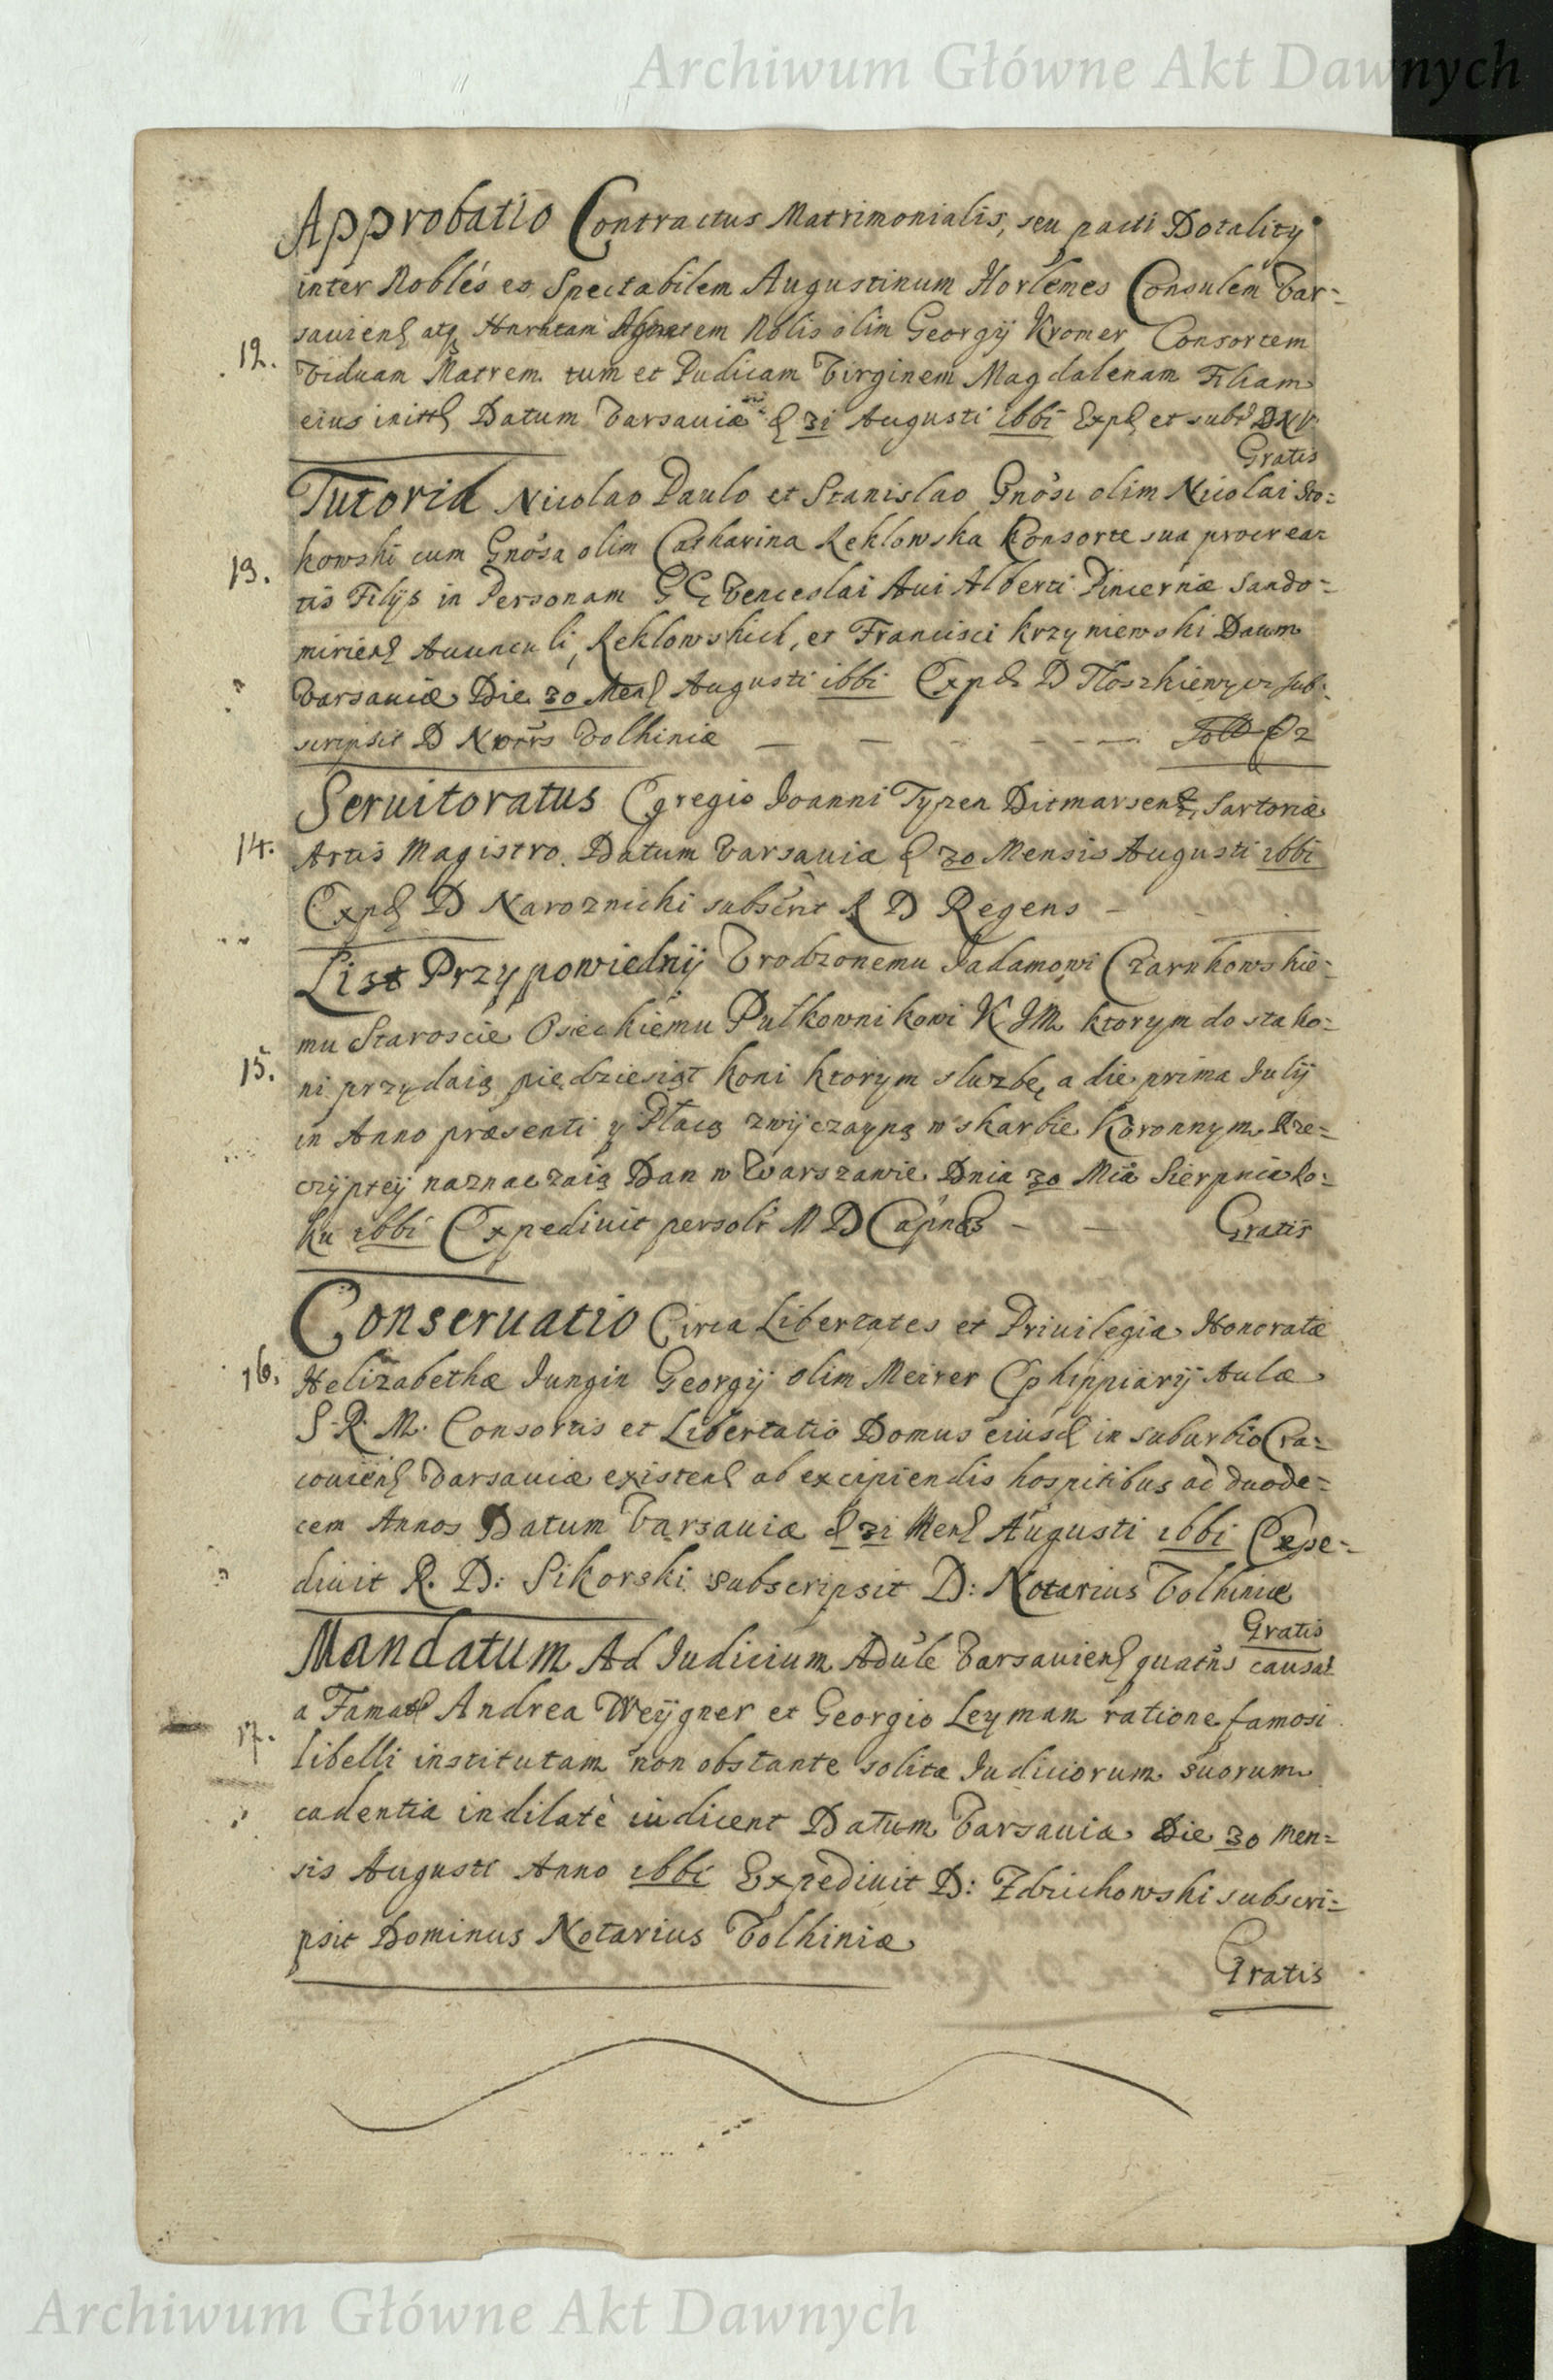 Archiwum Główne Akt Dawnych
Approbatio Contractus Matrimonialis, seu pacti Dotality
inter Nobles et Spectabilem Augustinum Horlemes Consulem Var=
savien atq Hnratam Agnetem Nolis olim Georgij Kromer Consortem
12. Viduam Matrem tum et Pudicam Virginem Magdalenam Filiam
eius initt Datum Varsaviæ d 31 Augusti 1661 Exp et subs D N V
Gratis
Tutoria Nicolao Paulo et Stanislao Gnosi olim Nicolai Sto=
kowski cum Gnosa olim Catharina Reklowska Consorte sua procrea=
13. tis Filijs in Personam GG Venceslai Avi Alberti Pincernæ Sando=
mirien Avunculi, Reklowskich, et Francisci Krzyniewski Datum
Varsaviæ Die 30 Men Augusti 1661 Exp D Tloszkiewycz sub:
scripsit D Notrs Volhiniæ
Servitoratus Egregio Joanni Typen Ditmarsen, Sartoriæ
14. Artis Magistro. Datum Varsavia d 30 Mensis Augusti 1661
Exp D Naroznicki subscrit R D Regens
List Przypowiednij Vrodzonemu Jadamowi Czarnkowskie=
mu Staroscie Osieckiemu Pułkownikowi K JM ktorym do sta ko=
15. ni przydaią piędziesiąt koni ktorym sluzbę a die prima Julij
in Anno præsenti y Płacą zwijczayną w skarbie Koronnym Rze=
czijptej naznaczaią Dan w Warszawie Dnia 30 Mia Sierpnia Ro=
ku 1661 Expedivit persolr M D Capnes Gratis
Conservatio Circa Libertates et Privilegia Honoratæ
16. Helizabethæ Jungin Georgij olim Meirer Ephippiarij Aulæ
S. R. M. Consortis et Libertatio Domus eiusd in suburbio Cra=
covien Varsaviæ existen ab excipiendis hospitibus ad duode=
cem Annos Datum Varsaviæ d 31 Men Augusti 1661 Expe=
divit R. D: Sikorski subscripsit D: Notarius Volhiniæ
Gratis
Mandatum Ad Judicium Advle Varsavien quatns causas
a Famat Andrea Weijgner et Georgio Leyman ratione famosi
17. libelli institutam non obstante solita Judiciorum suorum
cadentia indilatè iudicent Datum Varsavia Die 30 Men=
sis Augusti Anno 1661 Expedivit D: Zdzichowski subscri=
psit Dominus Notarius Volhiniæ
Gratis
Archiwum Główne Akt Dawnych